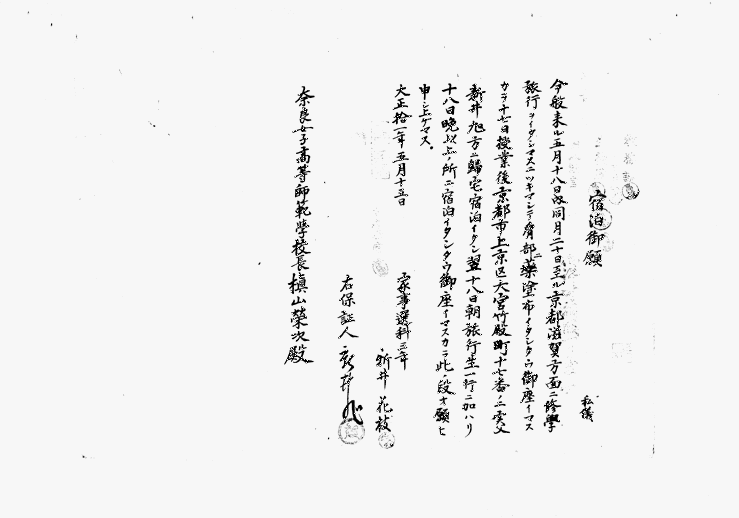 宿泊御願
私儀
今般来ル五月十八日ヨリ同月二十日ニ至ル京都滋賀方面ニ修學
旅行ヲイタシマスニツキマシテ背部ニ藥塗布イタシタウ御座イマス
カラ十七日授業後京都市上京区大宮竹殿町十七番ノ二実父
新井旭方ニ歸宅宿泊イタシ翌十八日朝旅行生一行ニ加ハリ
十八日晩以上ノ所ニ宿泊イタシタウ御座イマスカラ此ノ段オ願ヒ
申シ上ゲマス。
大正拾一年五月十五日
家事選科三年
新井花枝
右保証人 新井
奈良女子高等師範學校長槙山榮次殿